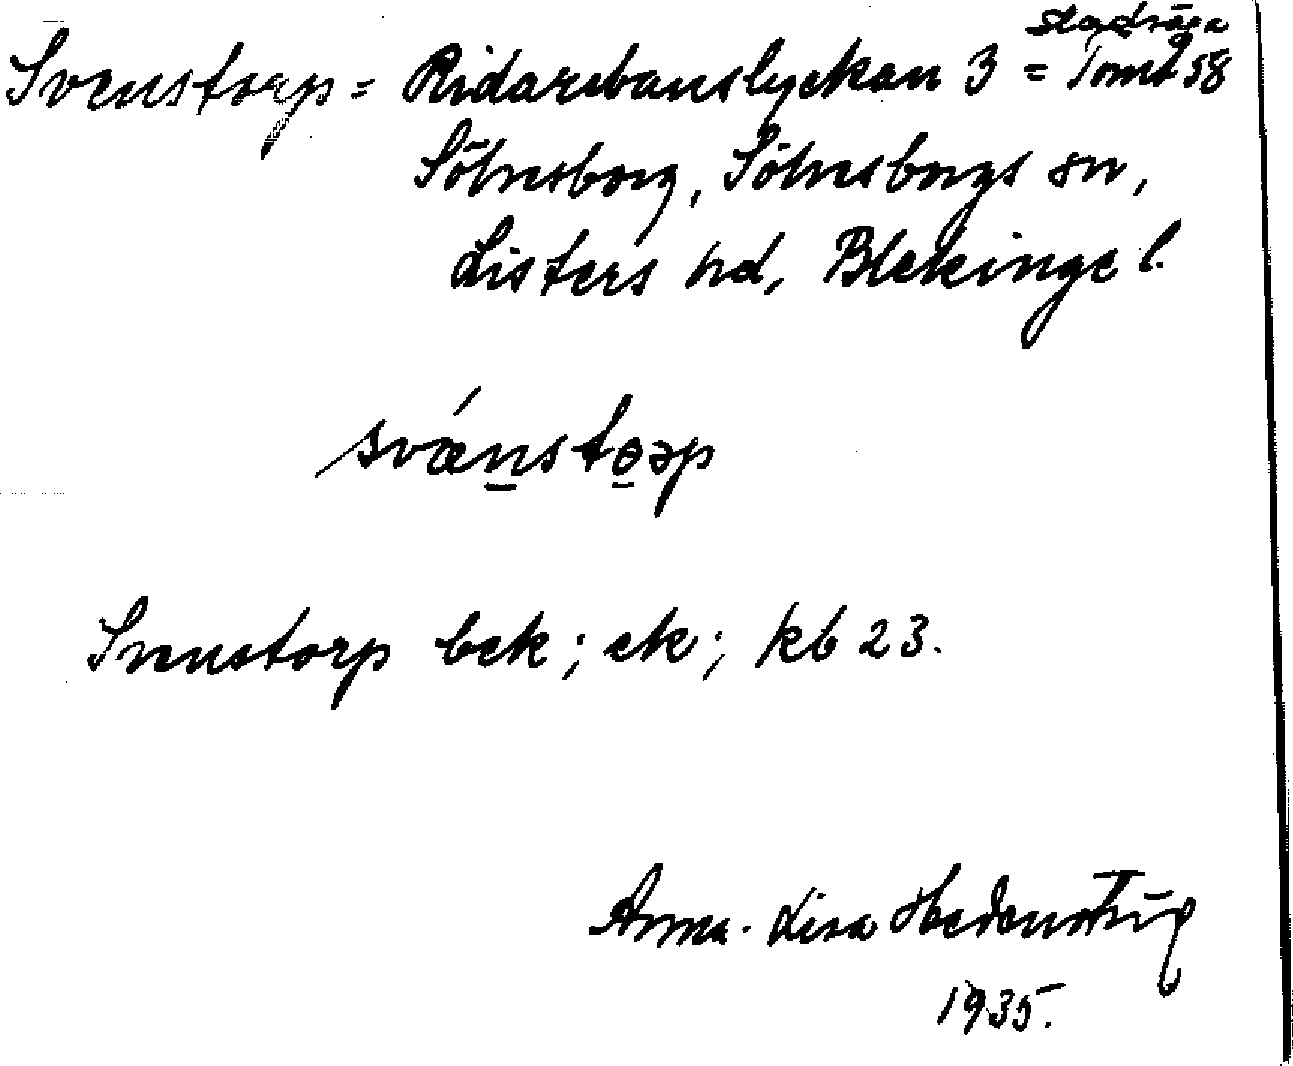 stadsäga
Svenstorp = Ridarebanslyckan 3 = Tomt 58
Sölvesborg, Sölvesborgs sn,
Listers hd, Blekinge l.
svǽnstoəp
Svenstorp bek; ek; kb 23.
Anna-Lisa
1935.